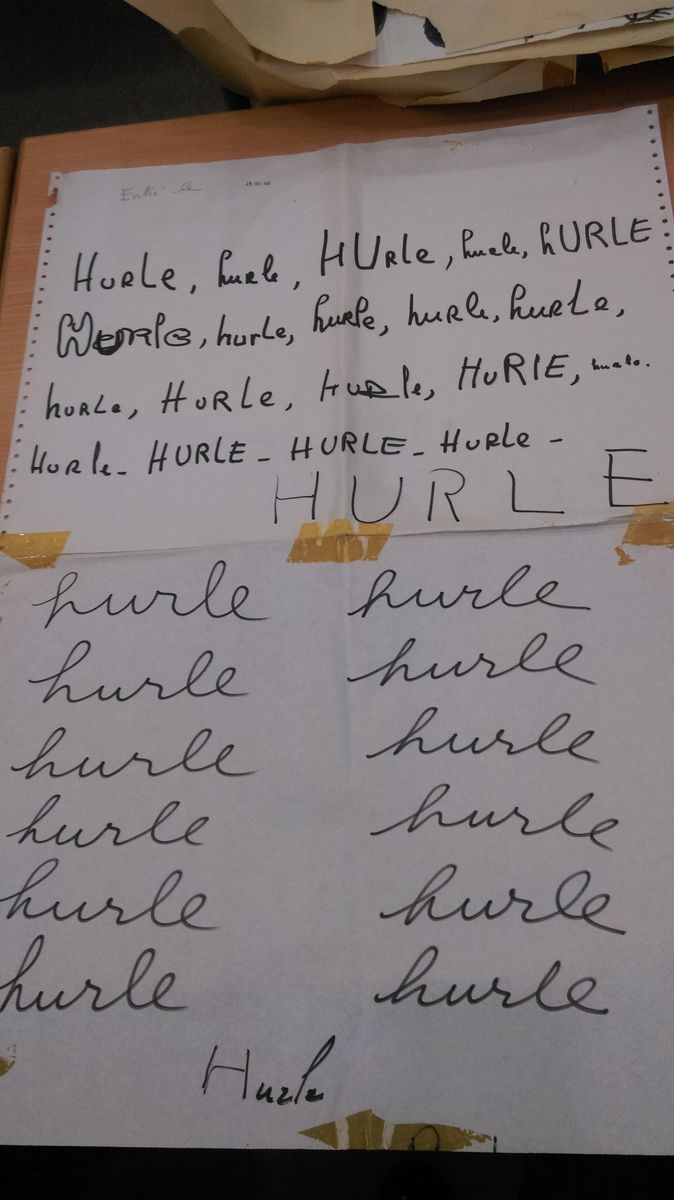 Entré le
HURLe, hurle, HURle, hurle, hURLE
Hurle, hurLe, hurle, hurle, huRLe,
huRLe, HURLe, HURle, HuRIE, hurle.
HuRle - HURLE - HURLE - HuRle -
HURLE
hurle hurle
hurle hurle
hurle hurle
hurle hurle
hurle hurle
hurle hurle
Hurle